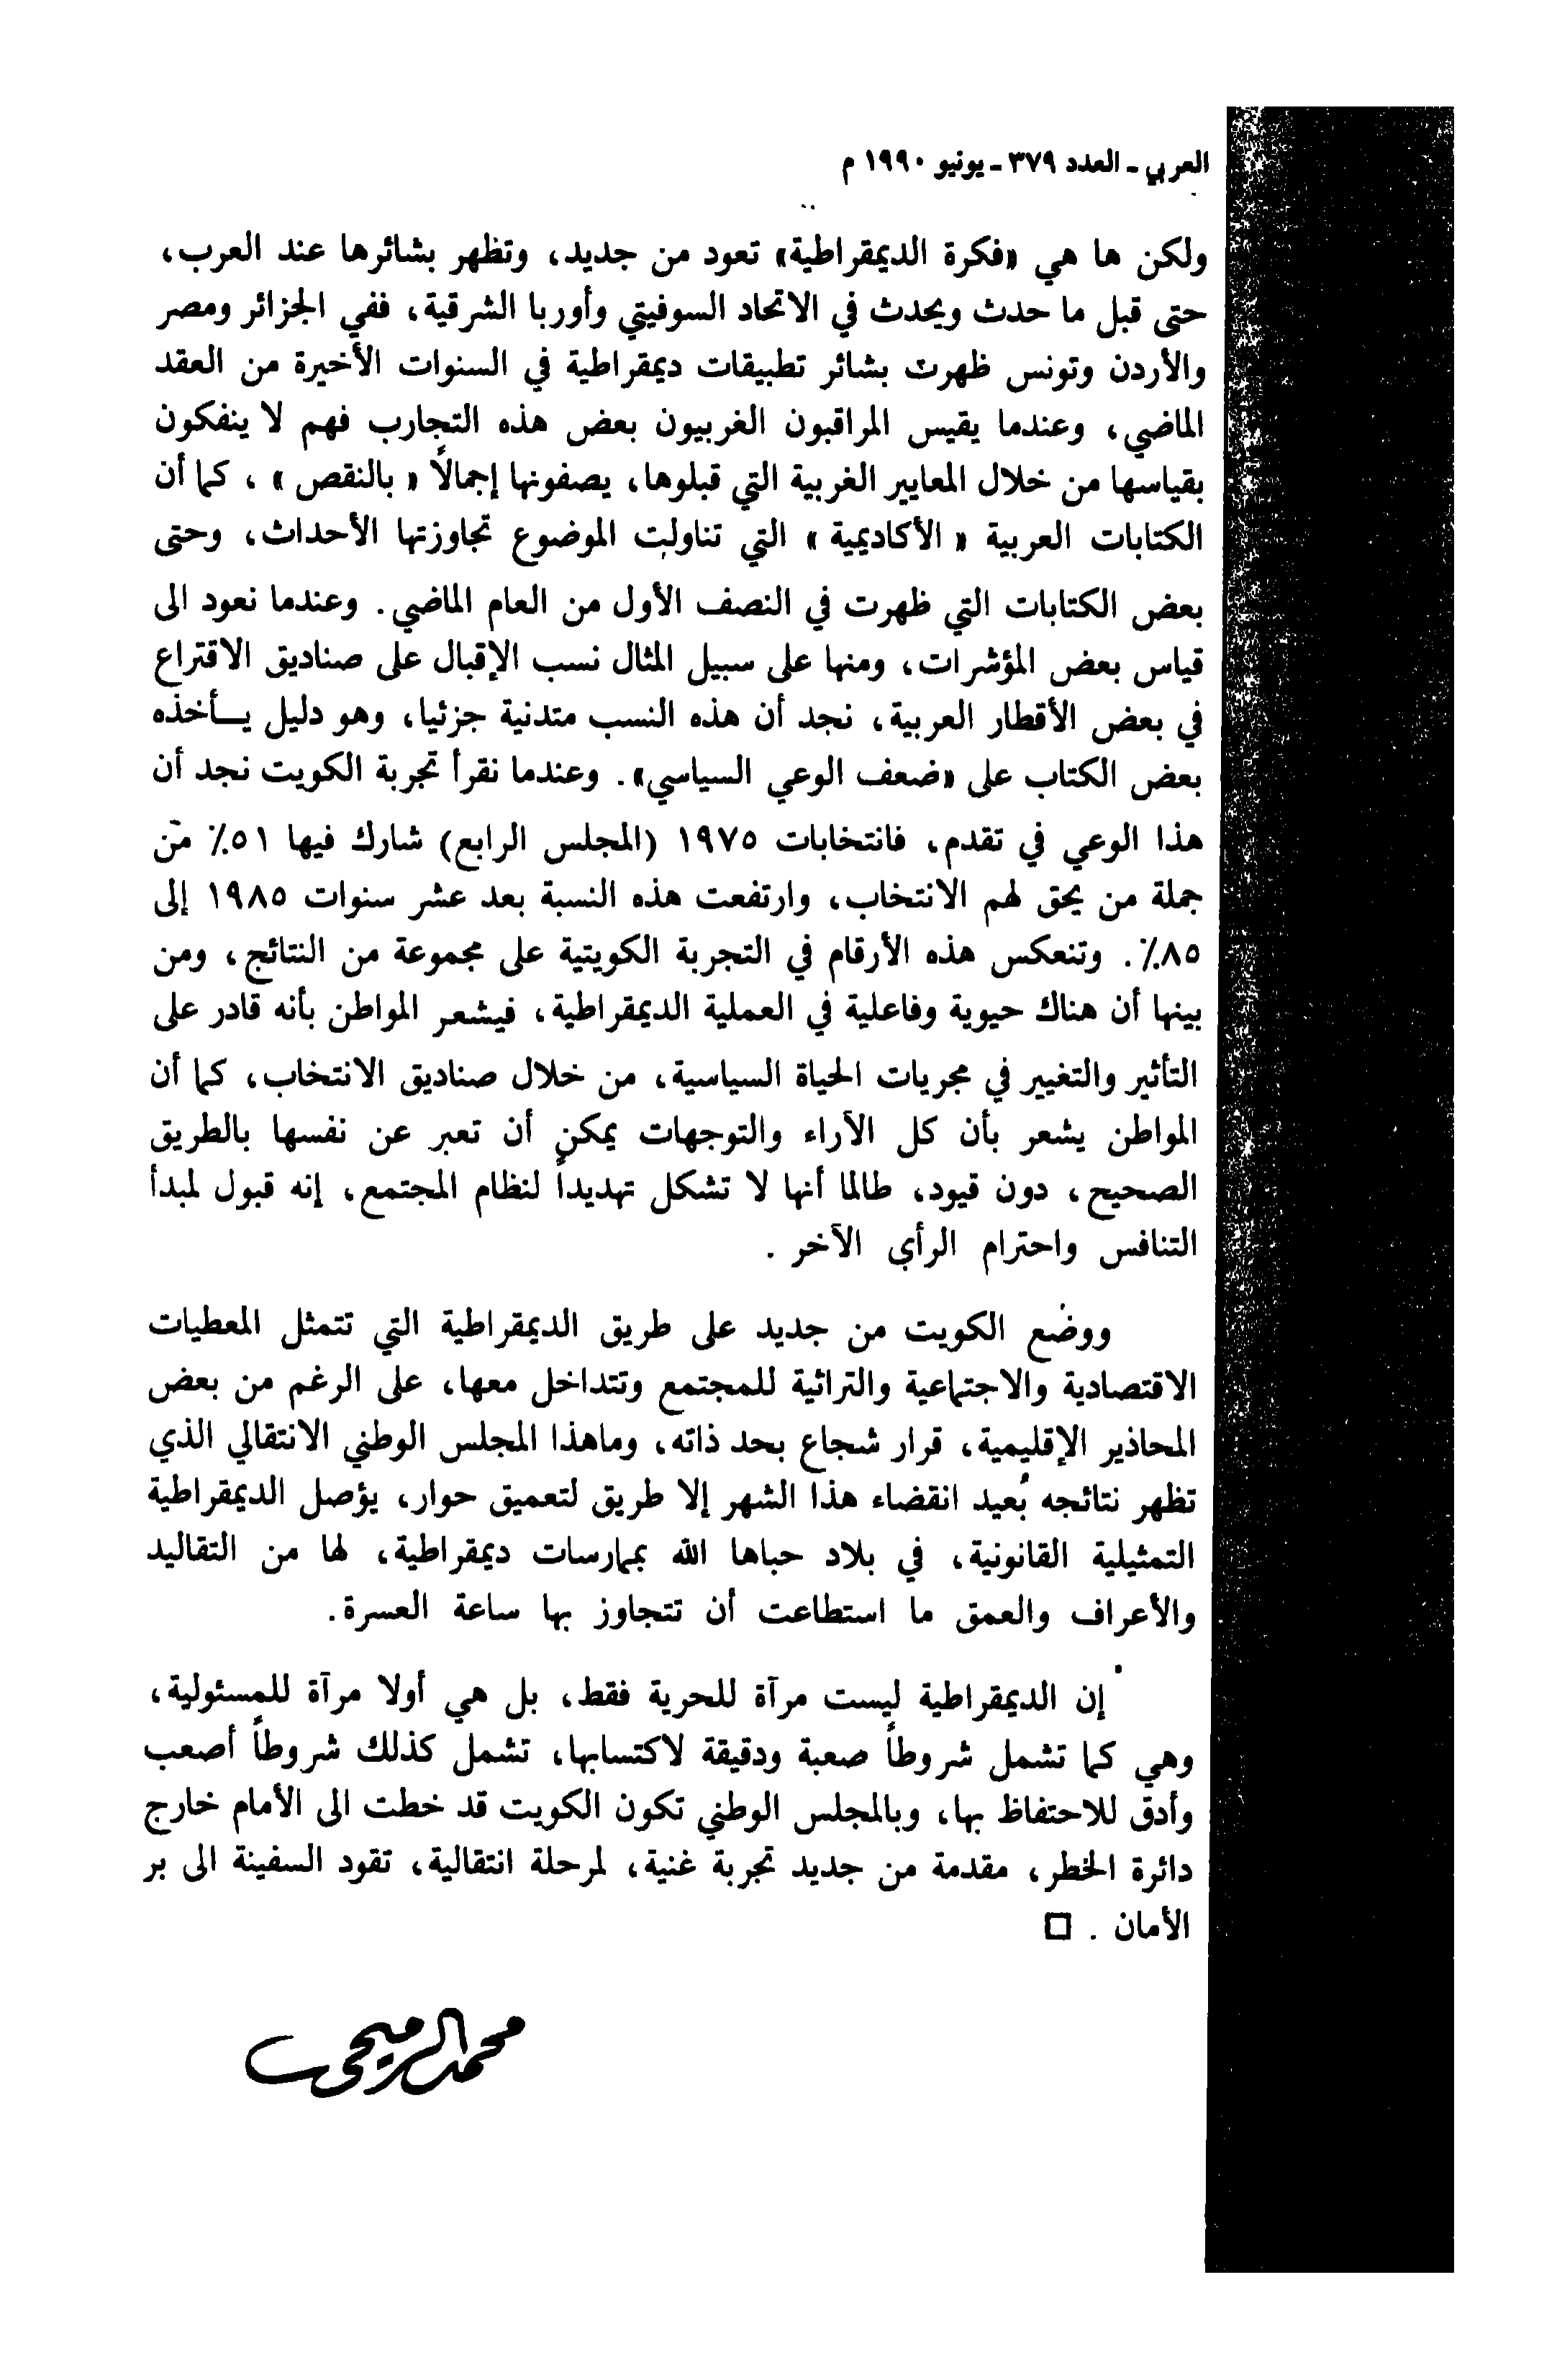 العربي - العدد ٣٧٩ - يونيو ١٩٩٠ م
ولكن ها هي «فكرة الديمقراطية» تعود من جديد، وتظهر بشائرها عند العرب،
حتى قبل ما حدث ويحدث في الاتحاد السوفيتي وأوربا الشرقية، ففي الجزائر ومصر
والأردن وتونس ظهرت بشائر تطبيقات ديمقراطية في السنوات الأخيرة من العقد
الماضي، وعندما يقيس المراقبون الغربيون بعض هذه التجارب فهم لا ينفكون
بقياسها من خلال المعايير الغربية التي قبلوها، يصفونها إجمالاً « بالنقص » ، كما أن
الكتابات العربية « الأكاديمية » التي تناولت الموضوع تجاوزتها الأحداث، وحتى
بعض الكتابات التي ظهرت في النصف الأول من العام الماضي. وعندما نعود الى
قياس بعض المؤشرات، ومنها على سبيل المثال نسب الإقبال على صناديق الاقتراع
في بعض الأقطار العربية، نجد أن هذه النسب متدنية جزئيا، وهو دليل يـأخذه
بعض الكتاب على «ضعف الوعي السياسي». وعندما نقرأ تجربة الكويت نجد أن
هذا الوعي في تقدم، فانتخابات ١٩٧٥ (المجلس الرابع) شارك فيها ٥١٪ من
جملة من يحق لهم الانتخاب، وارتفعت هذه النسبة بعد عشر سنوات ١٩٨٥ إلى
٨٥٪. وتنعكس هذه الأرقام في التجربة الكويتية على مجموعة من النتائج، ومن
بينها أن هناك حيوية وفاعلية في العملية الديمقراطية، فيشعر المواطن بأنه قادر على
التأثير والتغيير في مجريات الحياة السياسية، من خلال صناديق الانتخاب، كما أن
المواطن يشعر بأن كل الآراء والتوجهات يمكن أن تعبر عن نفسها بالطريق
الصحيح، دون قيود، طالما أنها لا تشكل تهديداً لنظام المجتمع، إنه قبول لمبدأ
التنافس واحترام الرأي الآخر .
ووضع الكويت من جديد على طريق الديمقراطية التي تتمثل المعطيات
الاقتصادية والاجتماعية والتراثية للمجتمع وتتداخل معها، على الرغم من بعض
المحاذير الإقليمية، قرار شجاع بحد ذاته، وماهذا المجلس الوطني الانتقالي الذي
تظهر نتائجه بُعيد انقضاء هذا الشهر إلا طريق لتعميق حوار، يؤصل الديمقراطية
التمثيلية القانونية، في بلاد حباها الله بممارسات ديمقراطية، لها من التقاليد
والأعراف والعمق ما استطاعت أن تتجاوز بها ساعة العسرة.
إن الديمقراطية ليست مرآة للحرية فقط، بل هي أولا مرآة للمسئولية،
وهي كما تشمل شروطاً صعبة ودقيقة لاكتسابها، تشمل كذلك شروطاً أصعب
وأدق للاحتفاظ بها، وبالمجلس الوطني تكون الكويت قد خطت الى الأمام خارج
دائرة الخطر، مقدمة من جديد تجربة غنية، لمرحلة انتقالية، تقود السفينة الى بر
الأمان . □
محمد الرميحي